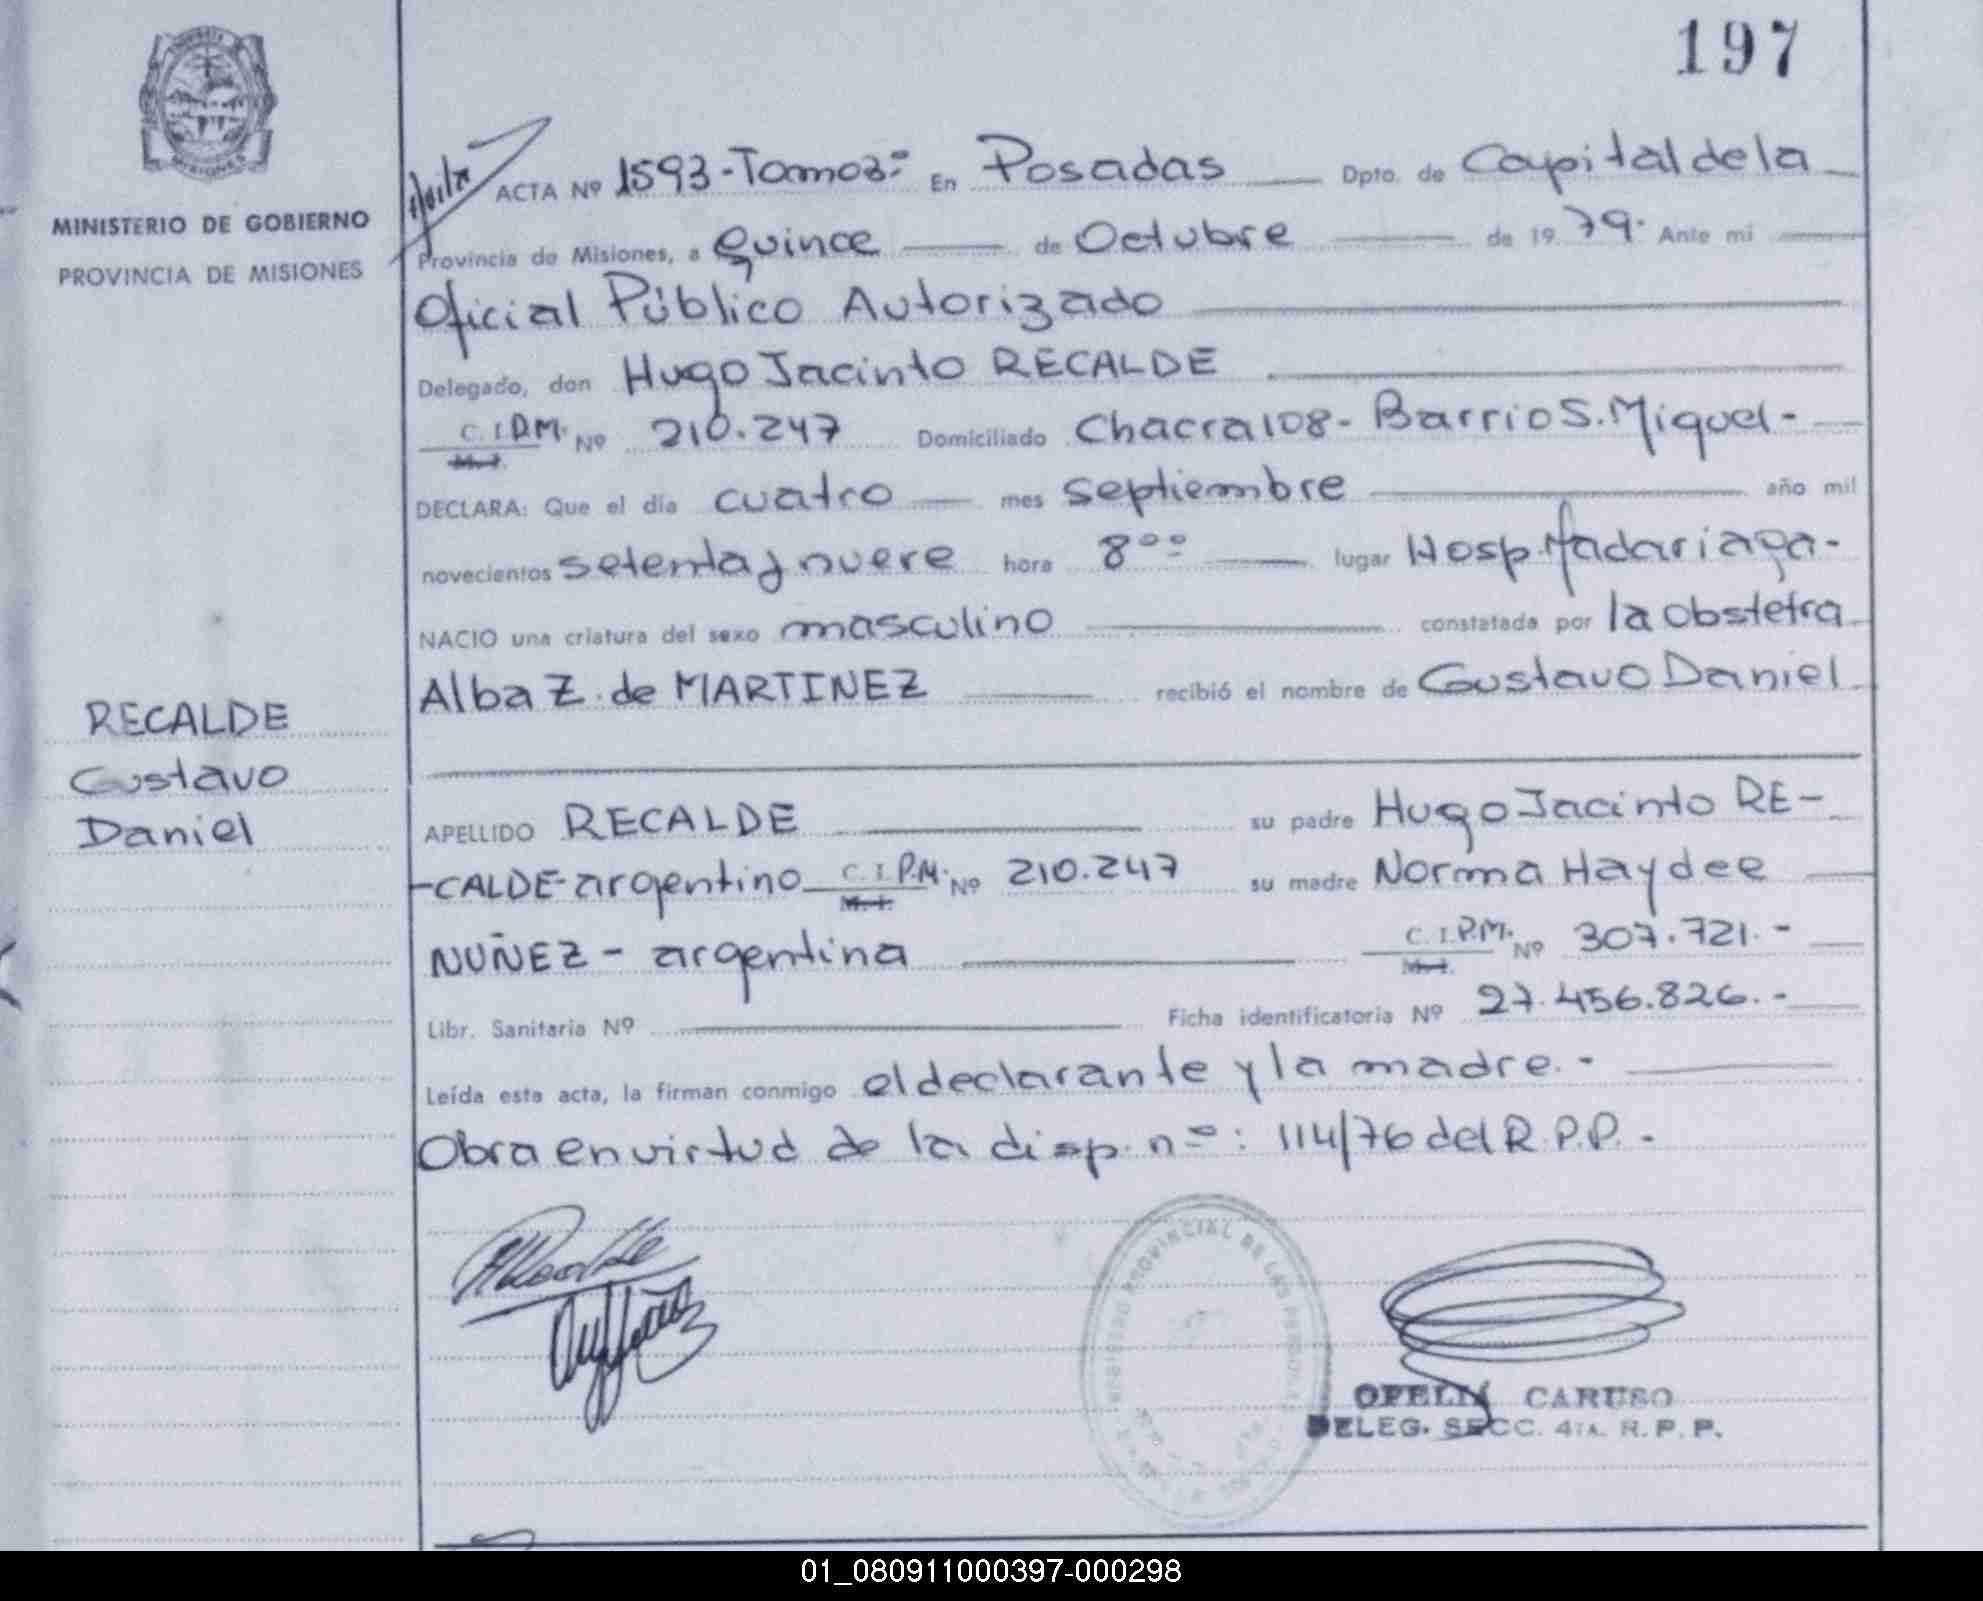 197
MINISTERIO DE GOBIERNO
PROVINCIA DE MISIONES
ACTA Nº 1593-Tomo3º En Posadas Dpto. de Capital de la
Provincia de Misiones, a Quince de Octubre de 19 79. Ante mi
Oficial Público Autorizado
Delegado, don Hugo Jacinto RECALDE
C.I.P.M. Nº 210.247 Domiciliado Chacra 108- Barrio S. Miguel-
M.I.
DECLARA: Que el día cuatro mes septiembre año mil
novecientos setenta y nueve hora 8ºº lugar Hosp. Madariaga-
NACIO una criatura del sexo masculino constatada por la obstetra
Alba Z. de MARTINEZ recibió el nombre de Gustavo Daniel
RECALDE
Gustavo
Daniel
APELLIDO RECALDE su padre Hugo Jacinto RE-
-CALDE- argentino C.I.P.M. Nº 210.247 su madre Norma Haydee
M.I.
NUÑEZ - argentina C.I.P.M. Nº 307.721.-
M.I.
Libr. Sanitaria Nº Ficha identificatoria Nº 27.456.826.-
Leída esta acta, la firman conmigo el declarante y la madre.-
Obra en virtud de la disp. nº: 114/76 del R.P.P.-
REGISTRO PROVINCIAL DE LAS PERSONAS
OFELIA CARUSO
DELEG. SECC. 4TA. R.P.P.
01_080911000397-000298